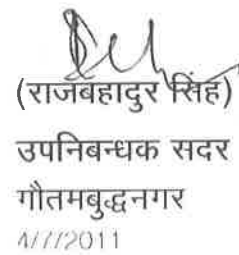 (राजबहादुर सिंह)
उपनिबन्धक सदर
गौतमबुद्धनगर
4/7/2011